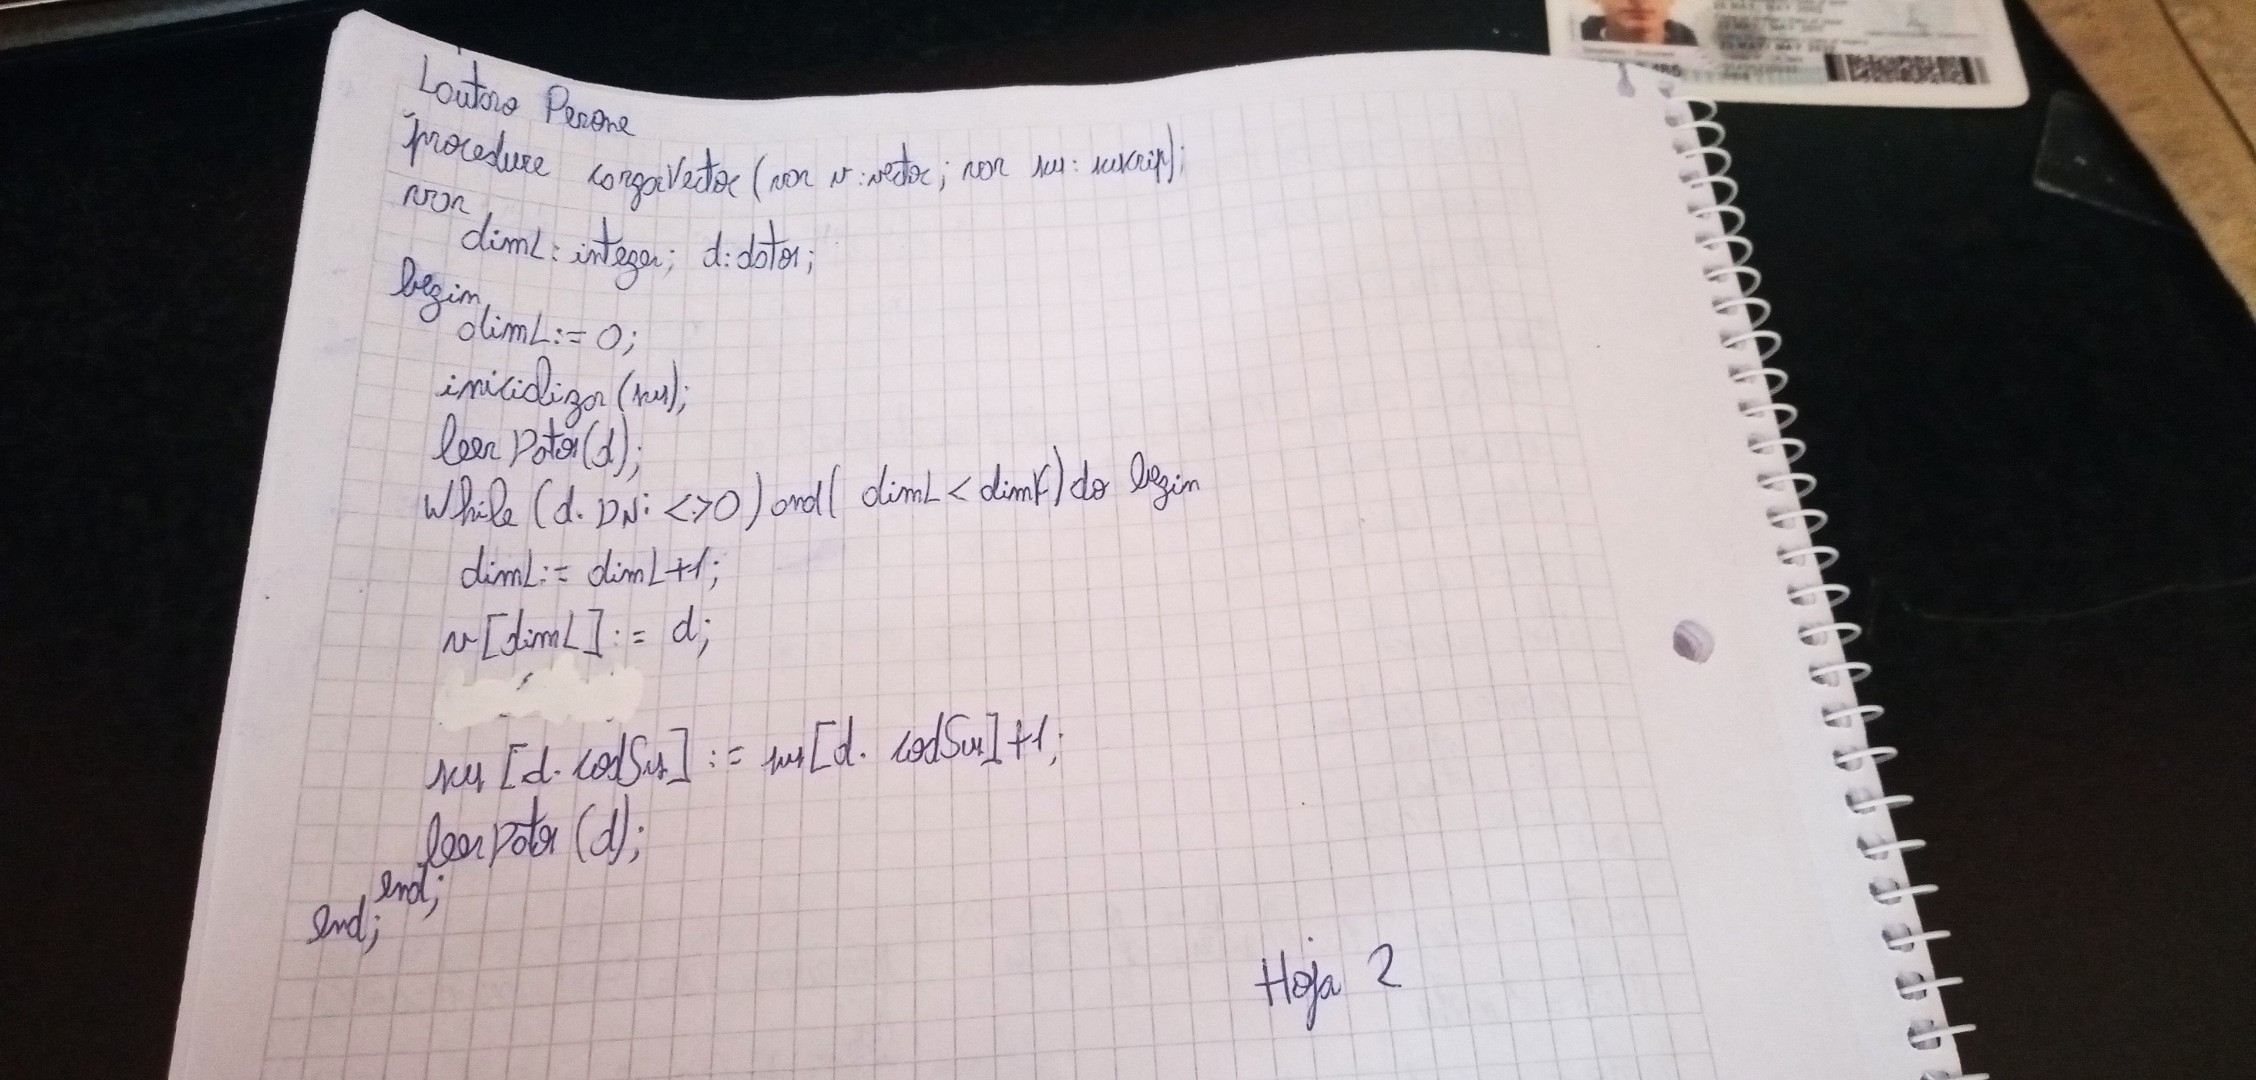 Lautaro Perone
procedure cargarVector (var v:vector; var sus: suscrip);
var
dimL: integer; d:datos;
begin
dimL:= 0;
inicializar (sus);
leerDatos(d);
While (d. DNi <>0) and ( dimL < dimF) do begin
dimL:= dimL+1;
v[dimL] := d;
sus [d. codSus] := sus[d. codSus]+1;
leerDatos (d);
end;
end;
Hoja 2